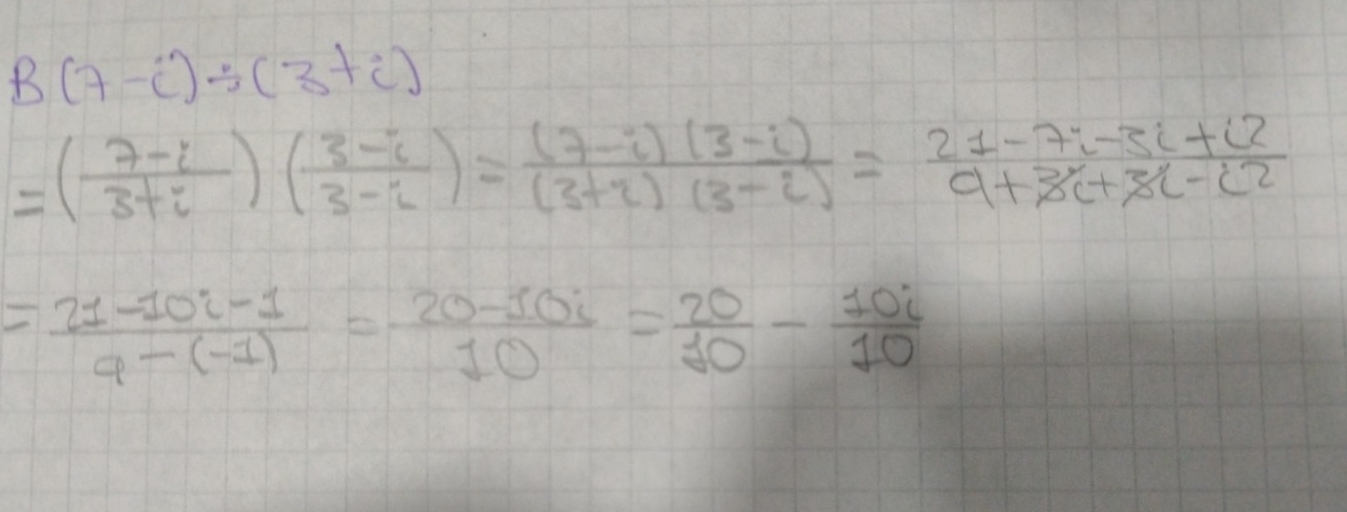 B (7-i)÷(3+i)
= (7-i/3+i) (3-i/3-i) = (7-i) (3-i)/(3+i) (3-i) = 21-7i-3i+i2/9+3i+3i-i2
= 21-10i-1/9-(-1) = 20-10i/10 = 20/10 - 10i/10